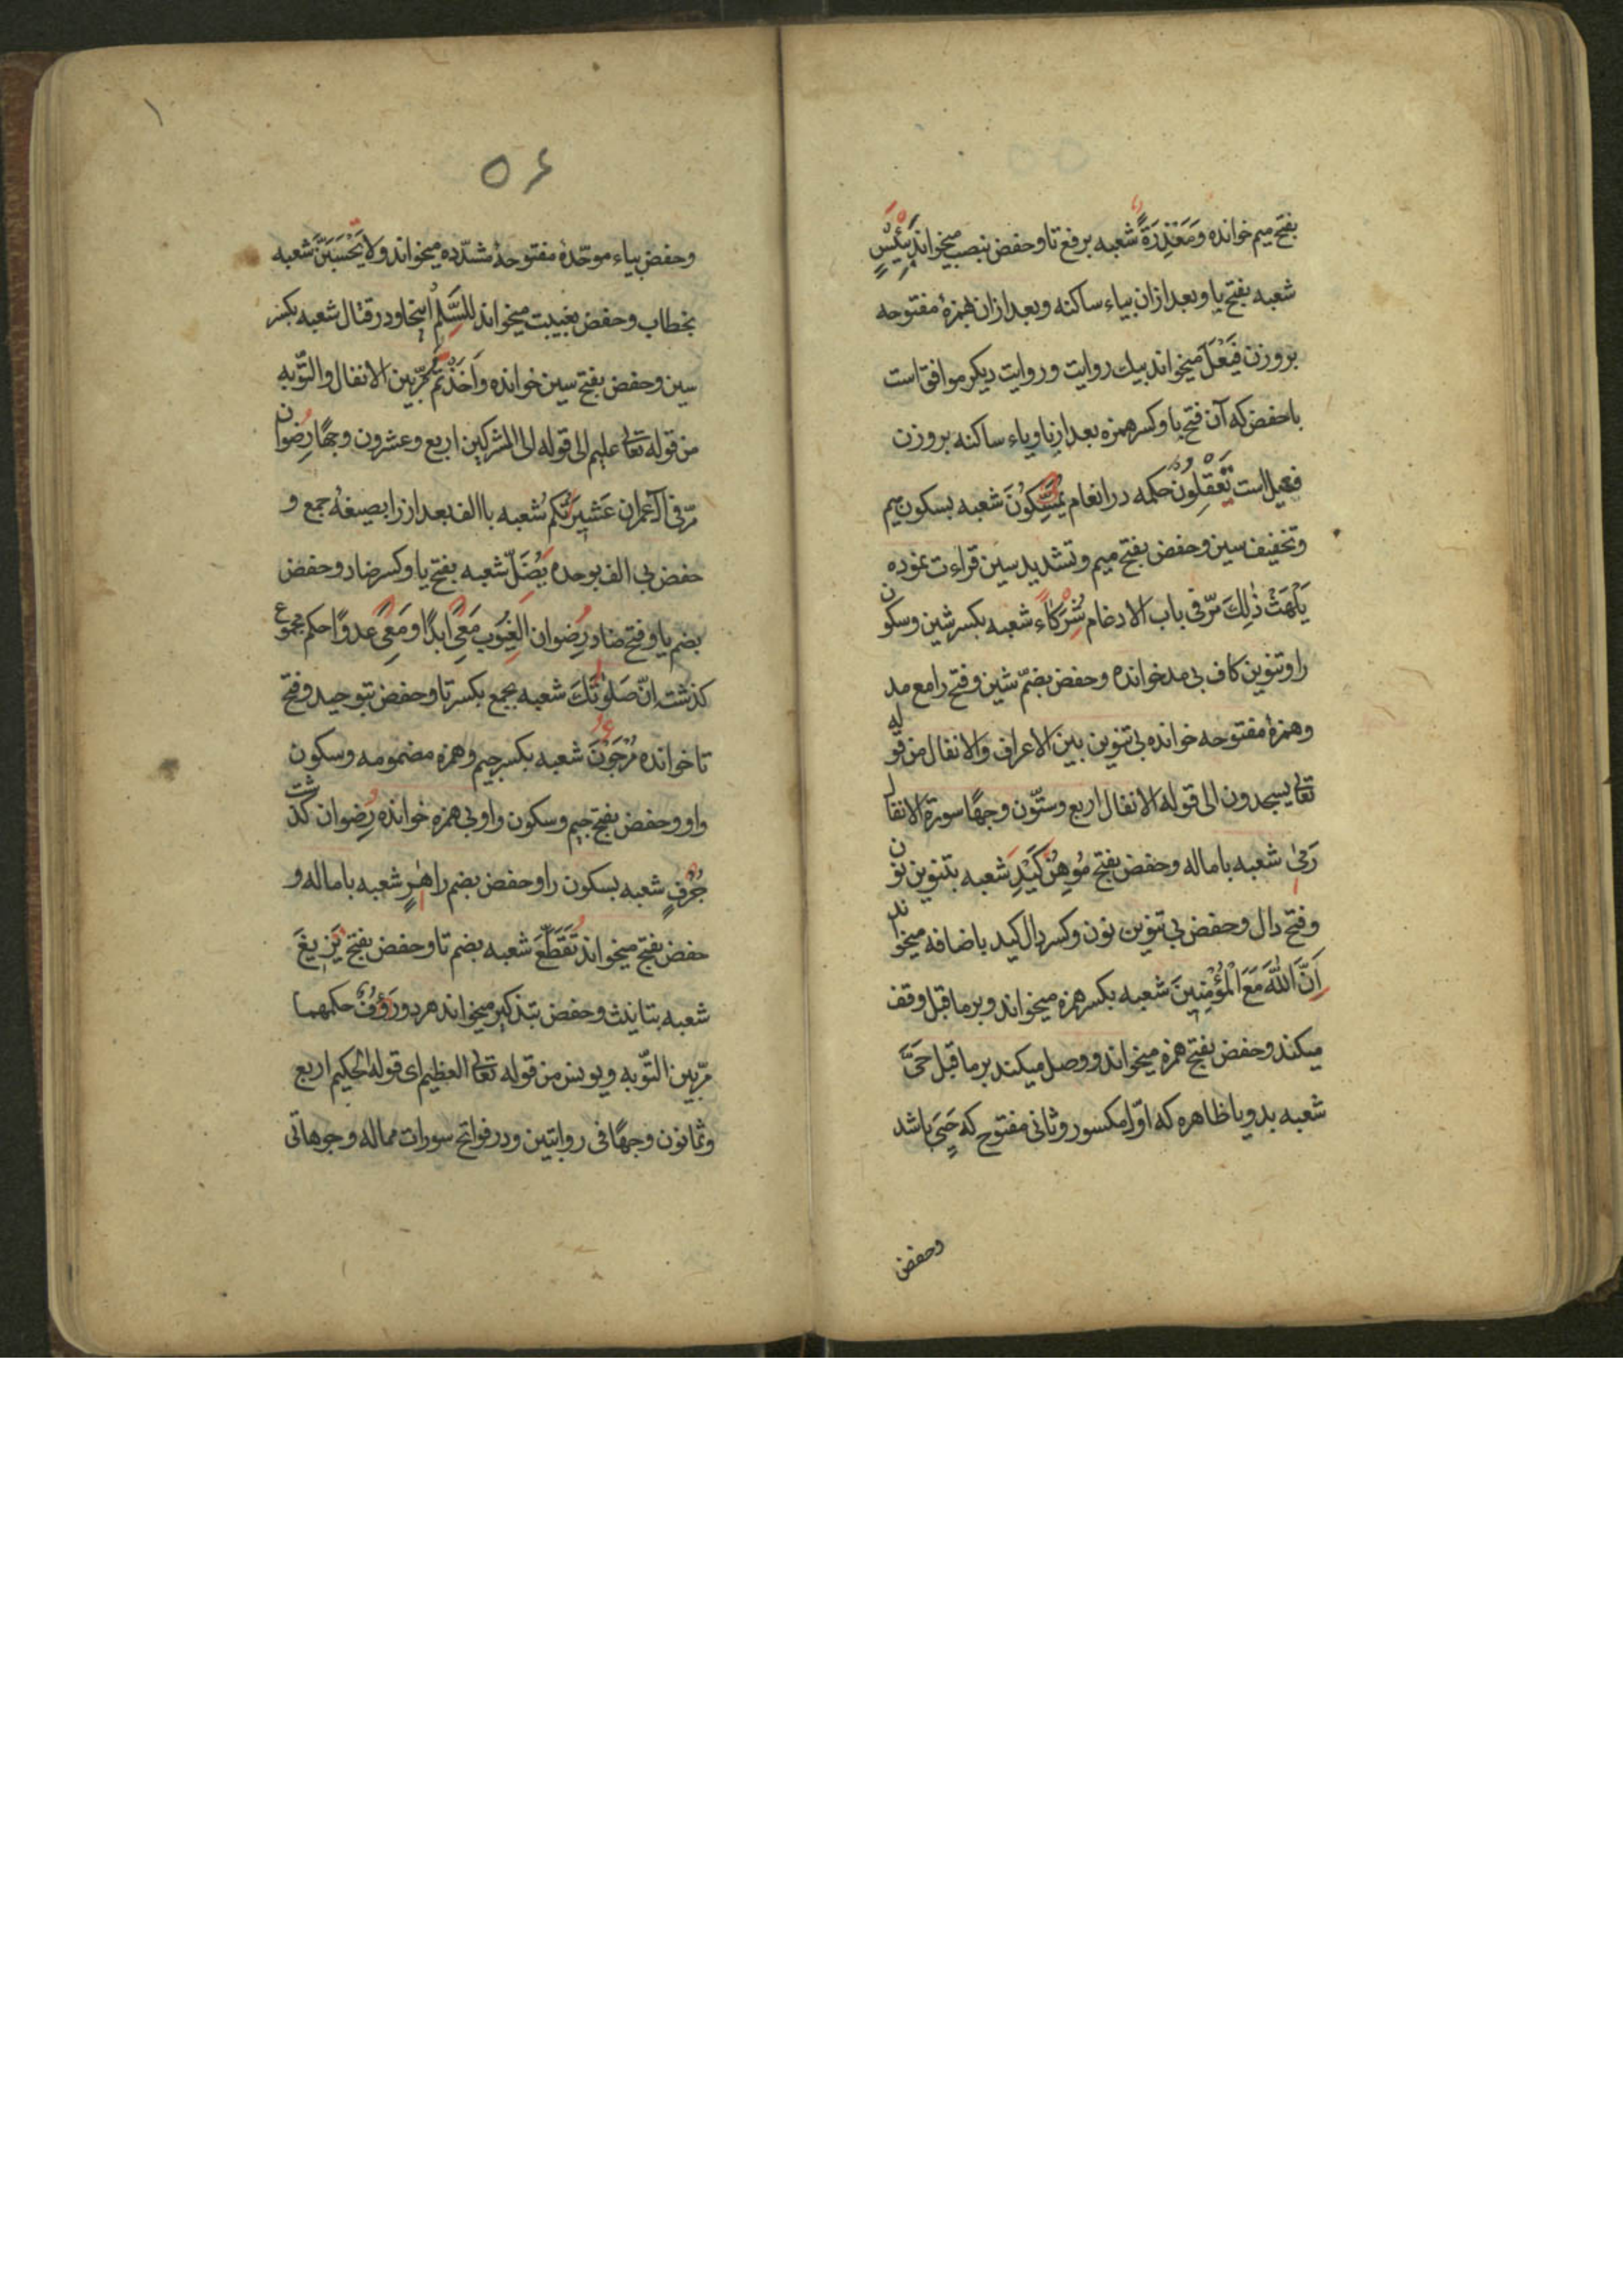 بفتح ميم خوانده ومَعْذِرَةً شعبه برفع تا وحفض بنصب ميخواند بَئِيسٍ
شعبه بفتح يا وبعد ازان بياء ساكنه وبعد ازان همزهٔ مفتوحه
بروزن فَيْعَلَ ميخواند بيك روايت وروايت ديكر موافق است
با حفض كه آن فتح با وكسر همزه بعد از با وياء ساكنه بروزن
فعيل است تَعْقِلُونَ حكمه در انعام يُمَسِّكُونَ شعبه بسكون ميم
وتخفيف سين وحفض بفتح ميم وتشديد سين قراءت نموده
يَلْهَثْ ذٰلِكَ مرّ فى باب الادغام شُرَكَاءَ شعبه بكسر شين وسكون
را وتنوين كاف بى مد خوانده وحفض بضمّ شين وفتح را مع مد
وهمزهٔ مفتوحه خوانده بى تنوين بين الاعراف والانفال من قوله
تعالى يسجدون الى قوله الانفال اربع وستّون وجهًا سورة الانفال
رَمىٰ شعبه باماله وحفض بفتح مُوهِنُ كَيْدِ شعبه بتنوين نون
وفتح دال وحفض بى تنوين نون وكسر دال كيد باضافه ميخواند
اَنَّ اللّٰهَ مَعَ الْمُؤْمِنِينَ شعبه بكسر همزه ميخواند وبر ما قبل وقف
ميكند وحفض بفتح همزه ميخواند ووصل ميكند بر ما قبل حَىَّ
شعبه بدو يا ظاهره كه اوّل مكسور وثانى مفتوح كه حَيِىَ باشد
وحفض
٥٦
وحفض بياء موحّدهٔ مفتوحهٔ مشدّده ميخواند ولا يَحْسَبَنَّ شعبه
بخطاب وحفض بغيبت ميخواند لِلسَّلْمِ اينجا ودر قتال شعبه بكسر
سين وحفض بفتح سين خوانده وَاَخَذْتُمْ مرّ بين الانفال والتّوبه
من قوله تعالى عليم الى قوله الى المشركين اربع وعشرون وجهًا رِضوان
مرّ فى آل عمران عَشِيرَتُكُم شعبه با الف بعد از را بصيغهٔ جمع و
حفض بى الف بوحده يُضَلُّ شعبه بفتح يا وكسر ضاد وحفض
بضم يا وفتح ضاد رِضوان الغُيُوبِ مَعِىَ ابدًا ومَعِىَ عدوًا حكم مجموع
كذشت اِنَّ صَلٰوتَكَ شعبه بجمع بكسر تا وحفض بتوحيد وفتح
تا خوانده مُرْجَوْنَ شعبه بكسر جيم وهمزه مضمومه وسكون
واو وحفض بفتح جيم وسكون واو بى همزه خوانده رِضوان كذشت
جُرُفٍ شعبه بسكون را وحفض بضم را هَارٍ شعبه باماله و
حفض بفتح ميخواند تَقَطَّعَ شعبه بضم تا وحفض بفتح يَزِيغَ
شعبه بتانيث وحفض بتذكير ميخواند هر دو رَؤُفٌ حكمهما
مرّ بين التّوبه ويونس من قوله تعالى العظيم اى قوله الحكيم اربع
وثمانون وجهًا فى روايتين ودر فواتح سورات مماله وجوهاتى